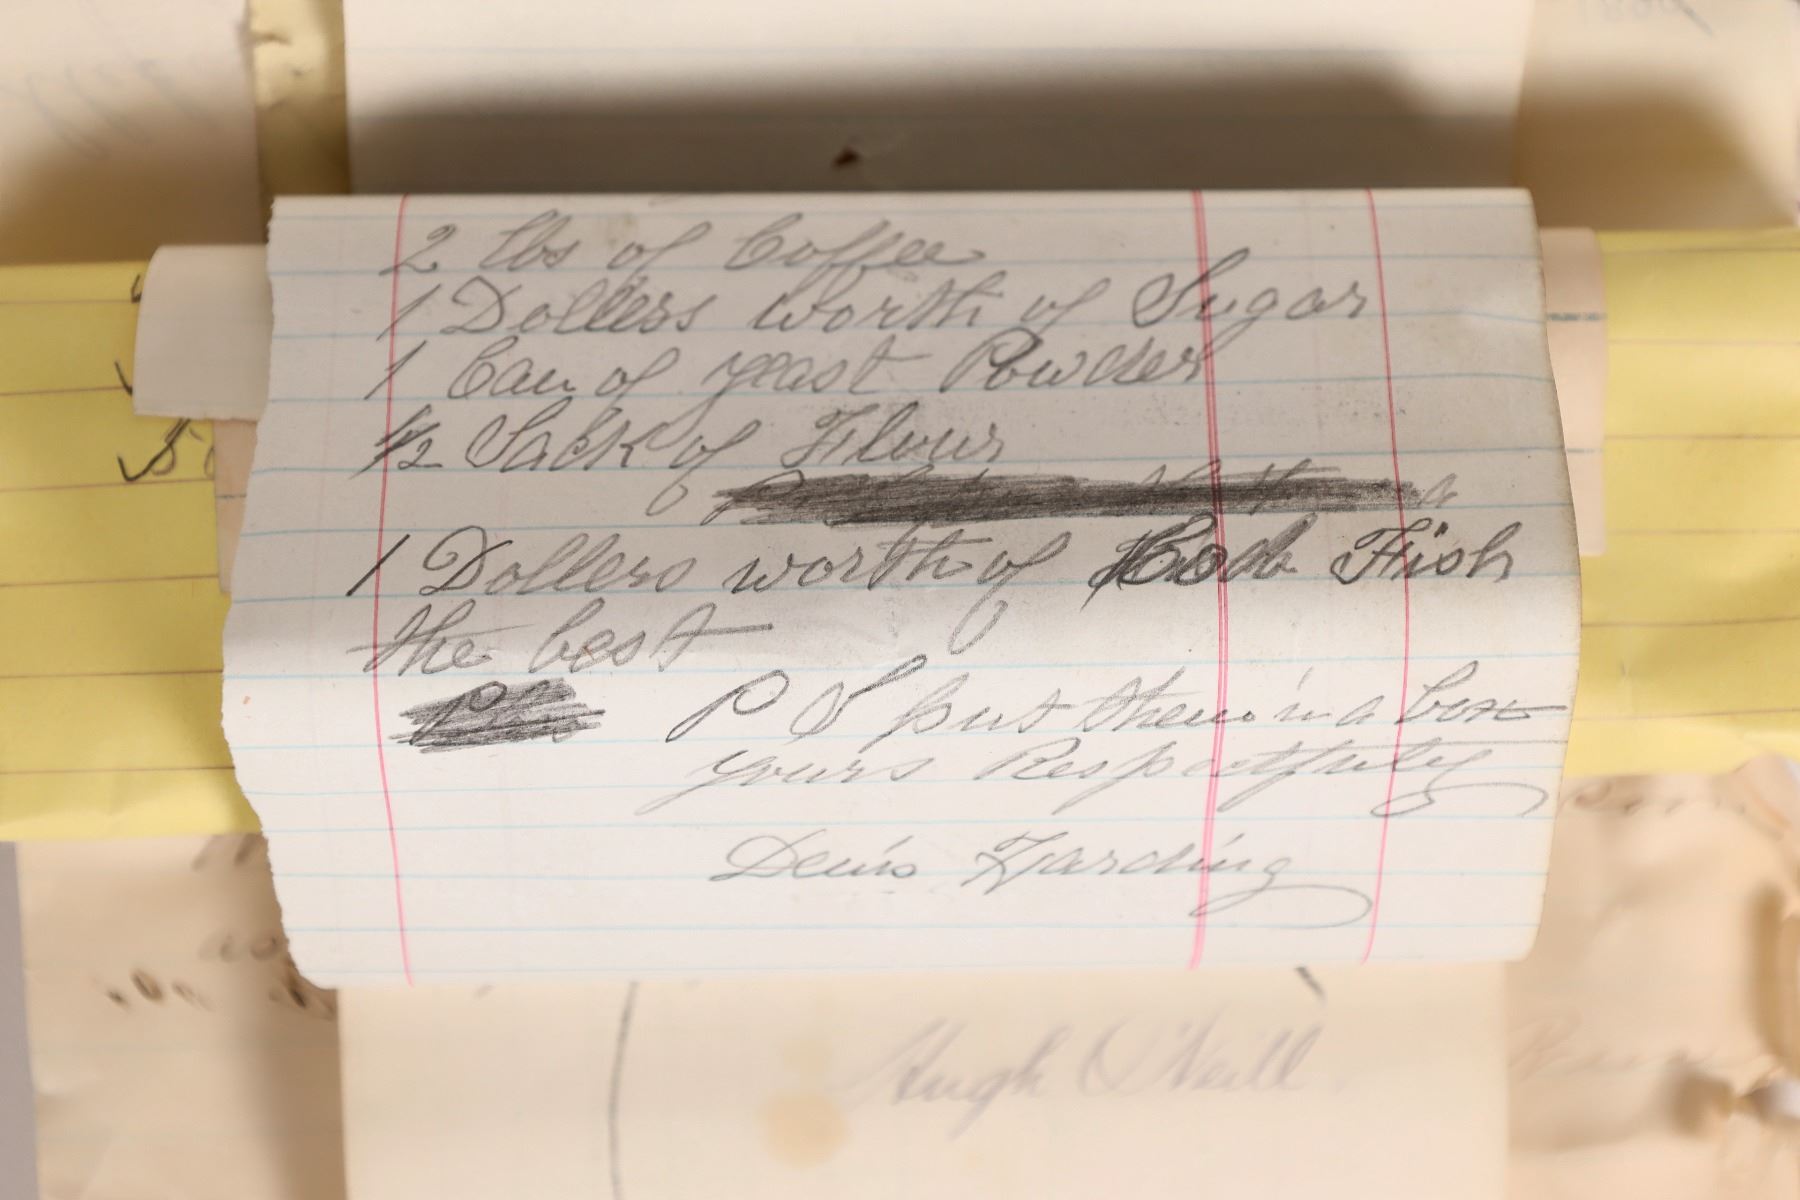 2 lbs of Coffee
1 Dollers worth of Sugar
1 Can of yeast Powder
1/2 Sack of Flour
1 Dollers worth of Fish
the best
P S put them in a box
yours Respectfuly
Denis Harding
Hugh O'Neill